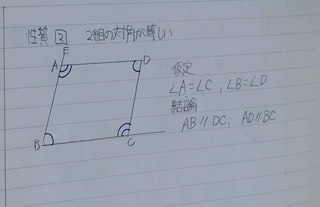 性質 ② 2組の対角が等しい
E
A D
仮定
∠A=∠C, ∠B=∠D
結論
AB∥DC, AD∥BC
B C